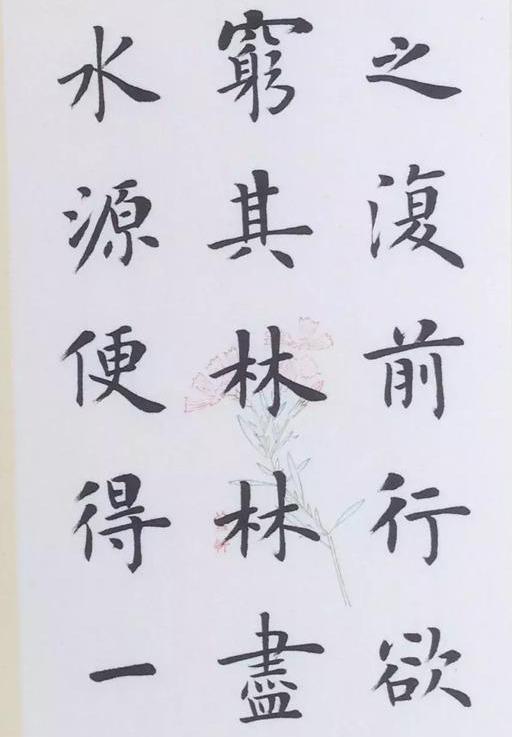 之復前行欲
窮其林林盡
水源便得一